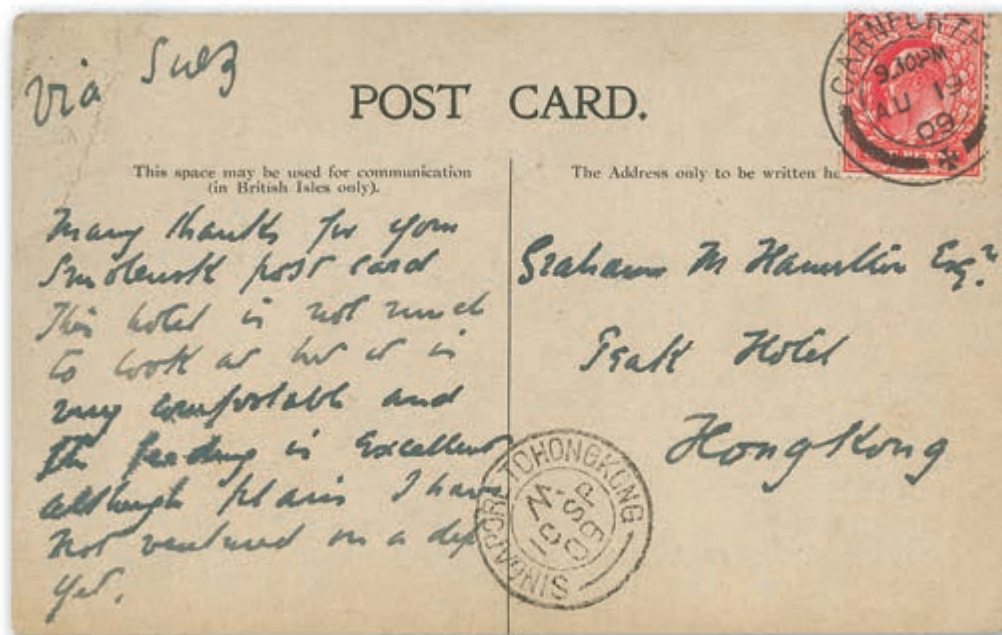 via Suez
POST CARD.
This space may be used for communication
(in British Isles only).
The Address only to be written he
Many thanks for your
Smolensk post card
This hotel is not much
to look at but it is
very comfortable and
the feeding is excellent
although plain I have
not ventured on a dip
yet.
Graham M Hamilton Esqr.
Peak Hotel
HongKong
CARNFORTH
9.30PM
AU 19
09
SINGAPORE TO HONGKONG
SP
09